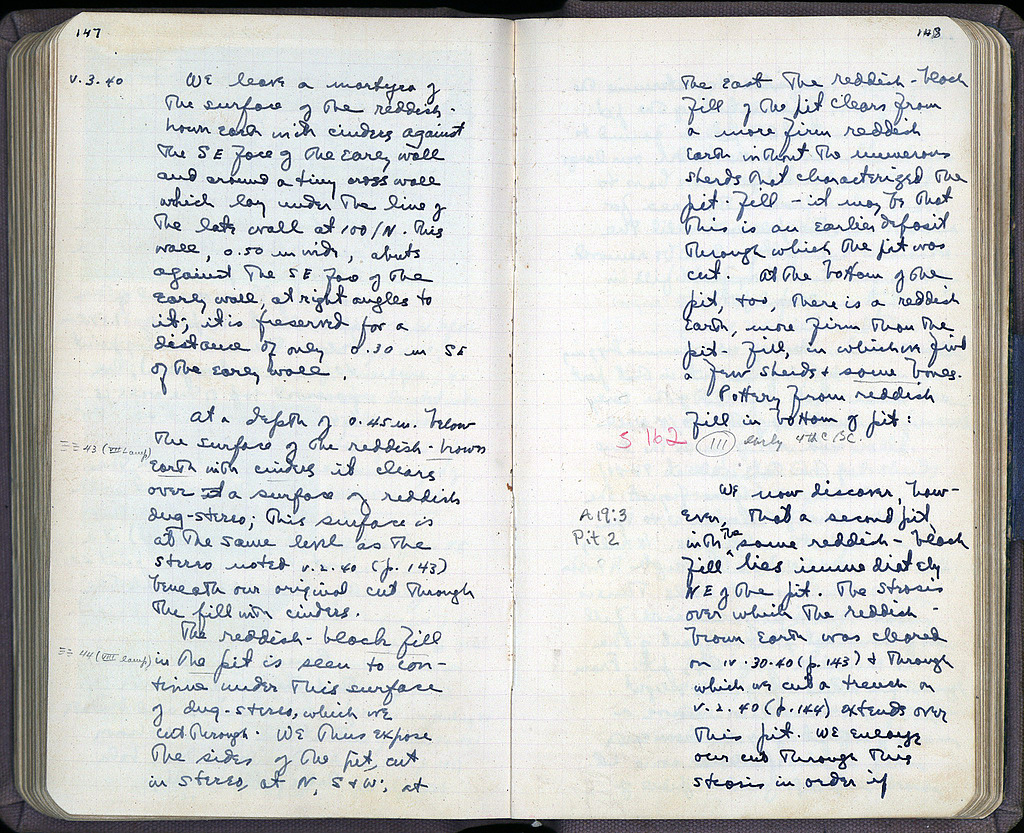 147
V.3.40
We leave a martyra of
the surface of the reddish-
brown earth with cinders against
the SE face of the early wall
and around a tiny cross wall
which lay under the line of
the late wall at 100/N. This
wall, 0.50 m wide, abuts
against the SE face of the
early wall, at right angles to
it; it is preserved for a
distance of only 0.30 m SE
of the early wall.
At a depth of 0.45 m. below
the surface of the reddish-brown
43 (VIII lamp)
earth with cinders it clears
over a surface of reddish
dug-stereo; this surface is
at the same level as the
stereo noted V.2.40 (p. 143)
beneath our original cut through
the fill with cinders.
The reddish-black fill
44 (VIII lamp)
in the pit is seen to con-
tinue under this surface
of dug-stereo, which we
cut through. We thus expose
the sides of the pit, cut
in stereo, at N, S & W; at
148
the East the reddish-black
fill of the pit clears from
a more firm reddish
earth without the numerous
sherds that characterized the
pit-fill - it may be that
this is an earlier deposit
through which the pit was
cut. At the bottom of the
pit, too, there is a reddish
earth, more firm than the
pit-fill, in which we find
a few sherds & some bones.
Pottery from reddish
fill in bottom of pit:
S 162
III early 4th c BC.
We now discover, how-
A19:3
ever, that a second pit
Pit 2
with the same reddish-black
fill lies immediately
NE of the pit. The strosis
over which the reddish-
brown earth was cleared
on IV.30.40 (p. 143) & through
which we cut a trench on
V.2.40 (p. 144) extends over
this pit. We enlarge
our cut through this
strosis in order if